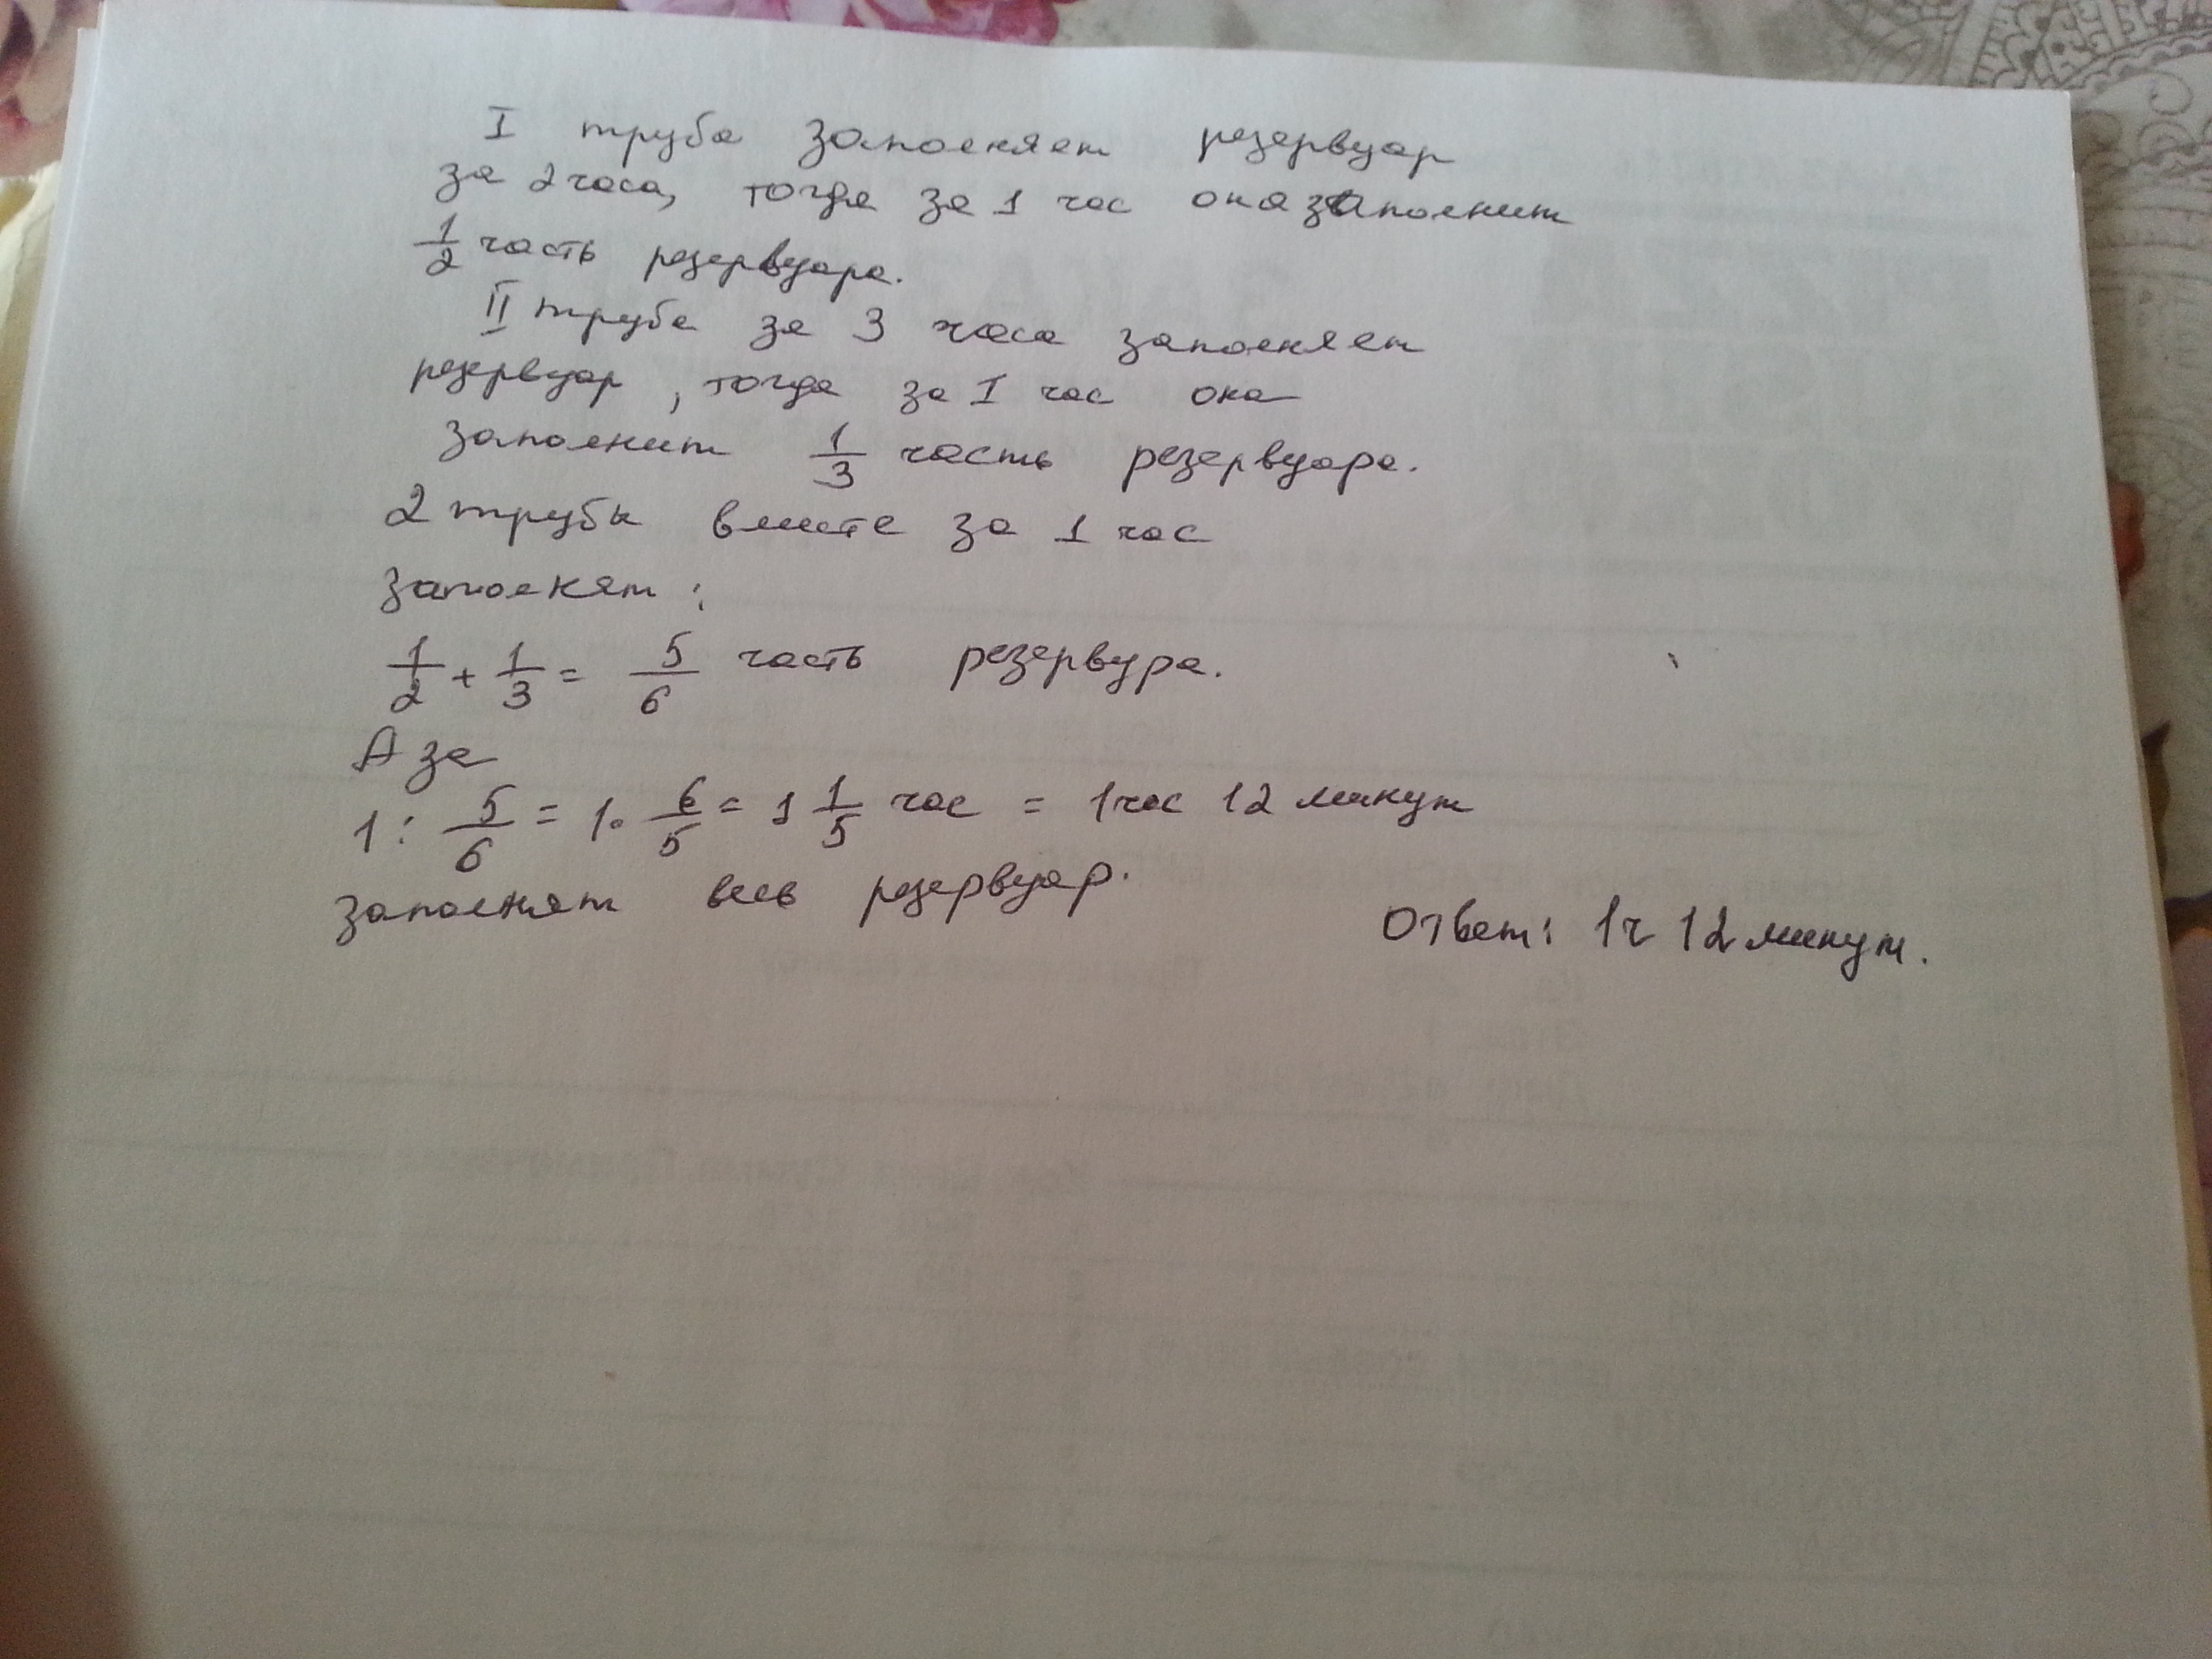 I труба заполняет резервуар
за 2 часа, тогда за 1 час она заполнит
1/2 часть резервуара.
II труба за 3 часа заполняет
резервуар, тогда за I час она
заполнит 1/3 часть резервуара.
2 трубы вместе за 1 час
заполнят:
1/2 + 1/3 = 5/6 часть резервура.
А за
1 : 5/6 = 1 · 6/5 = 1 1/5 час = 1 час 12 минут
заполнят весь резервуар.
Ответ: 1ч 12 минут.